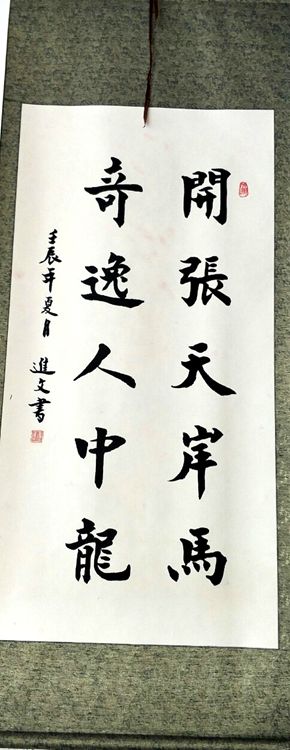 開張天岸馬
奇逸人中龍
壬辰年夏月
進文書